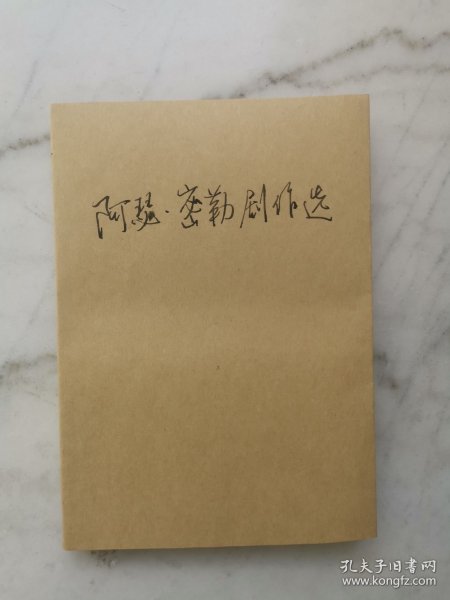 阿瑟·密勒剧作选
孔夫子旧书网
www.kongfz.com